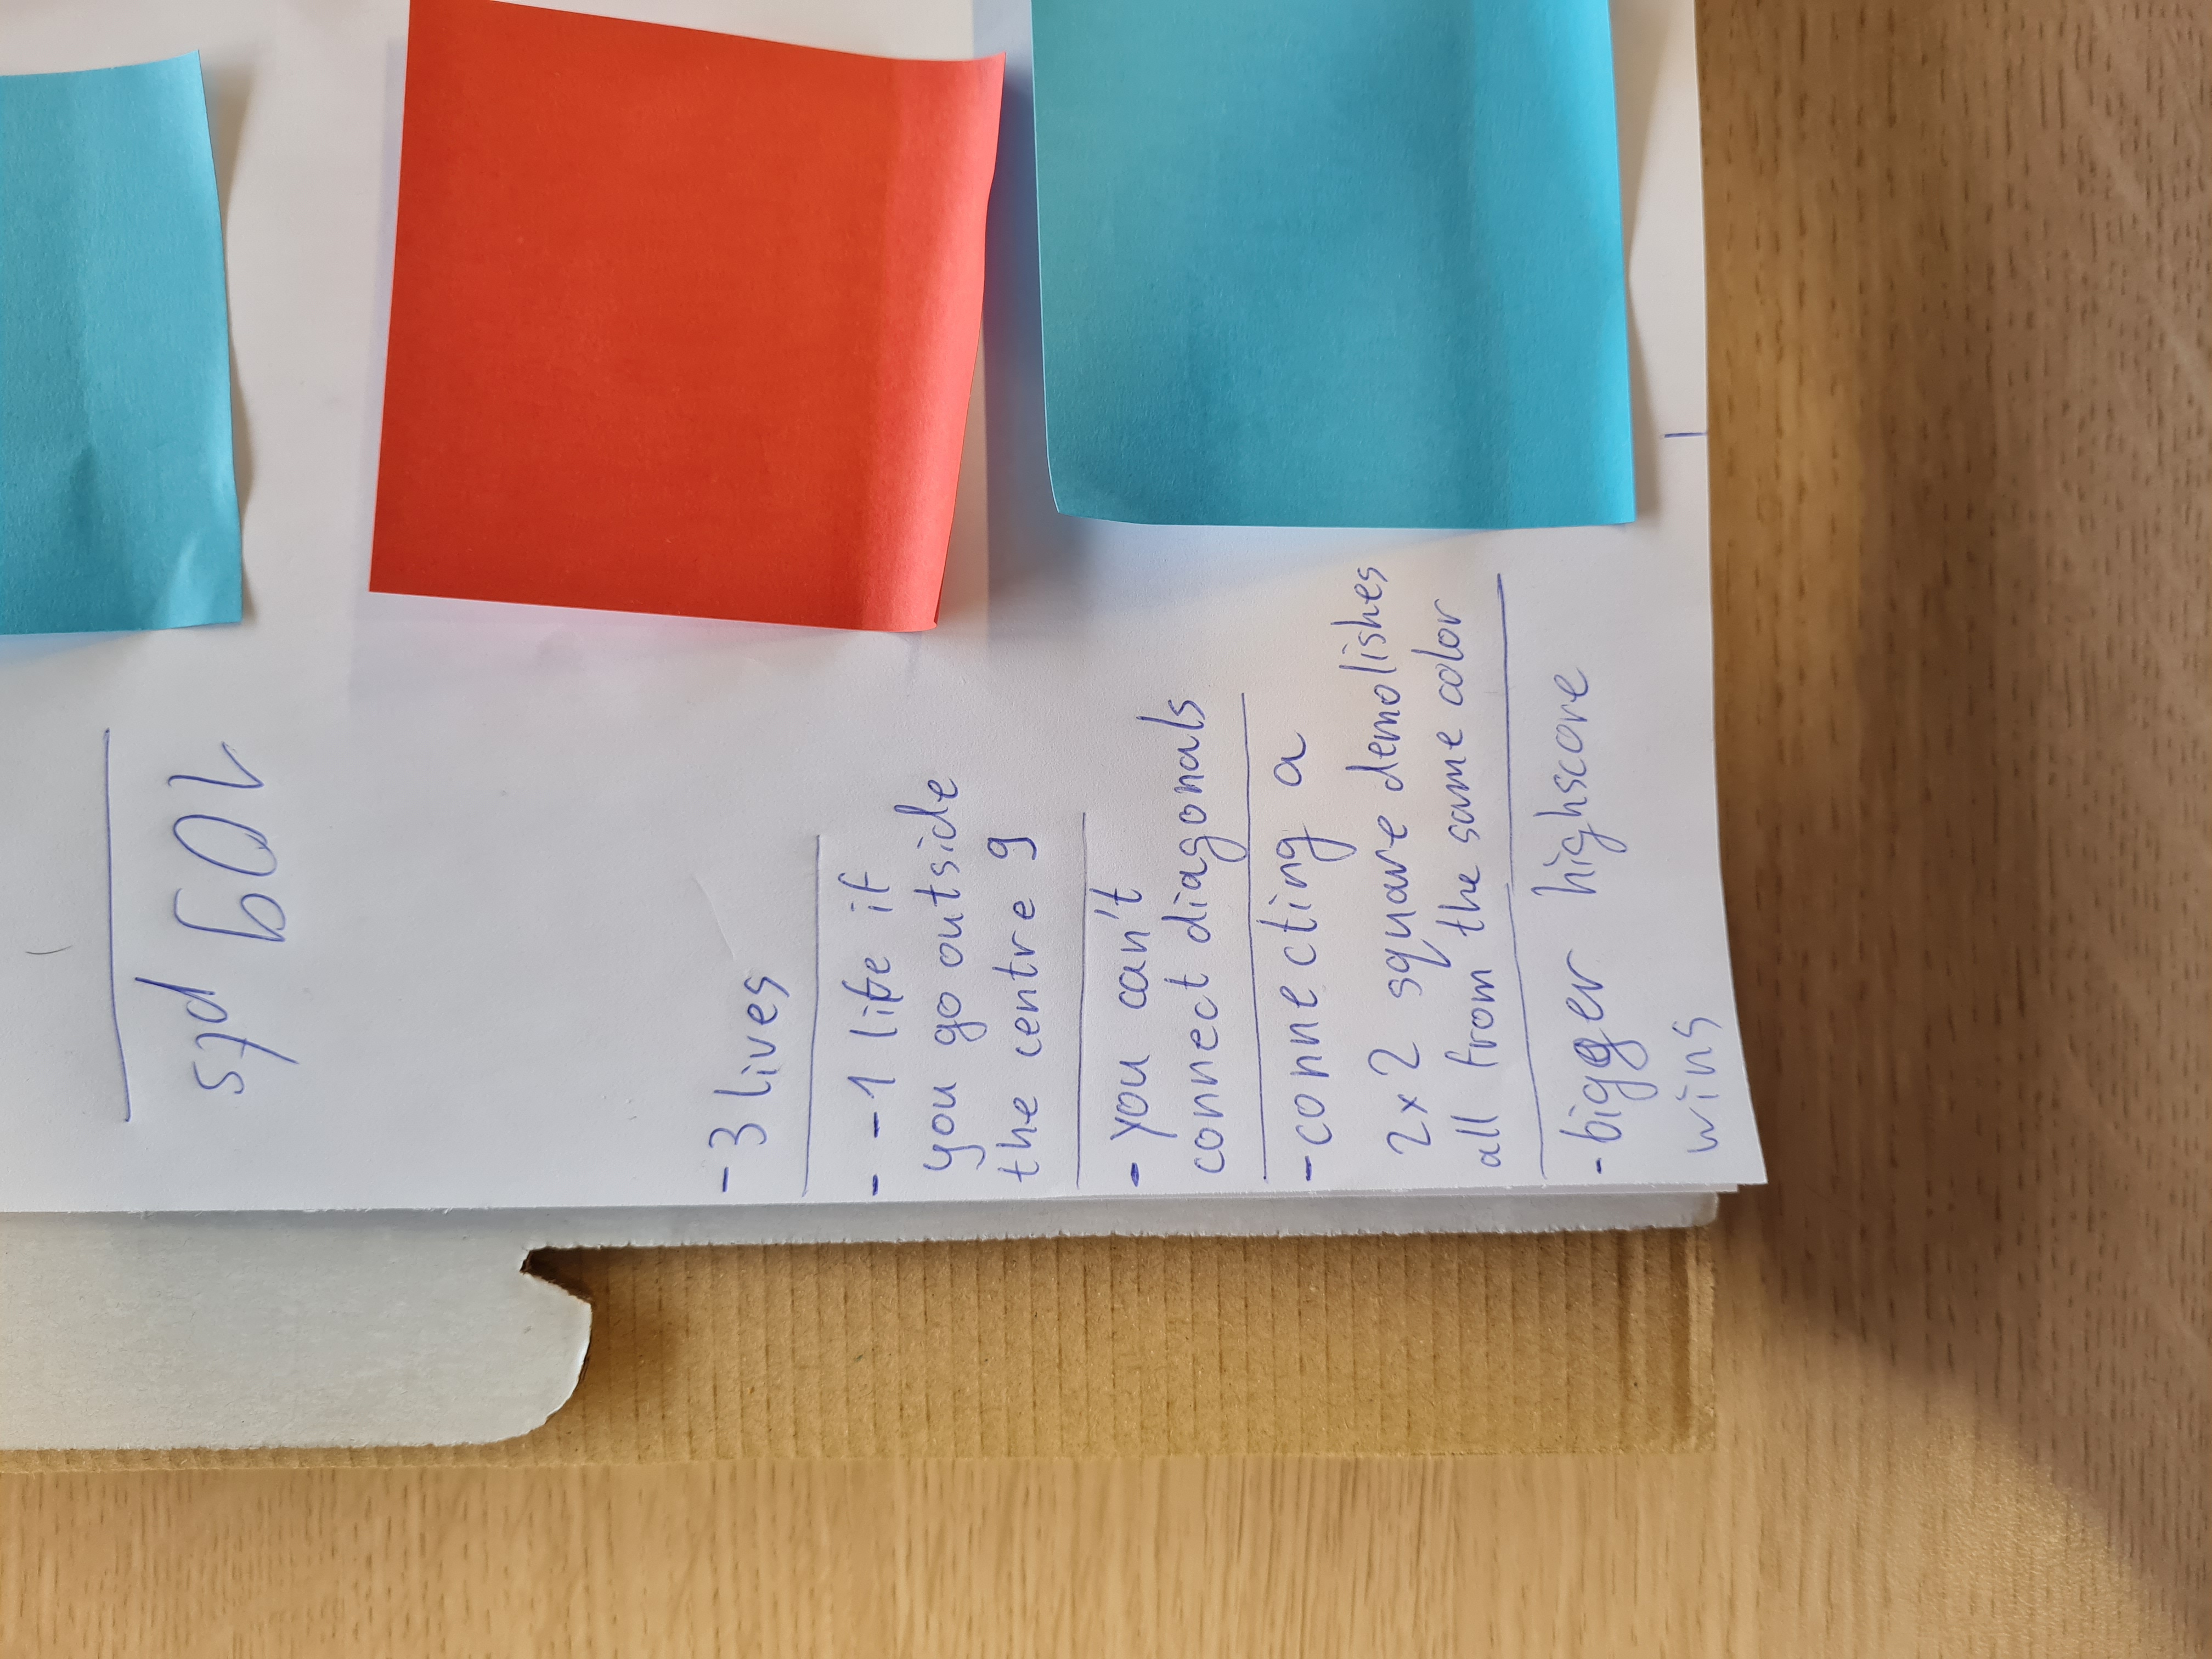 109 pts
- 3 lives
- -1 life if
you go outside
the centre 9
- you can't
connect diagonals
- connecting a
2x2 square demolishes
all from the same color
- bigger highscore
wins